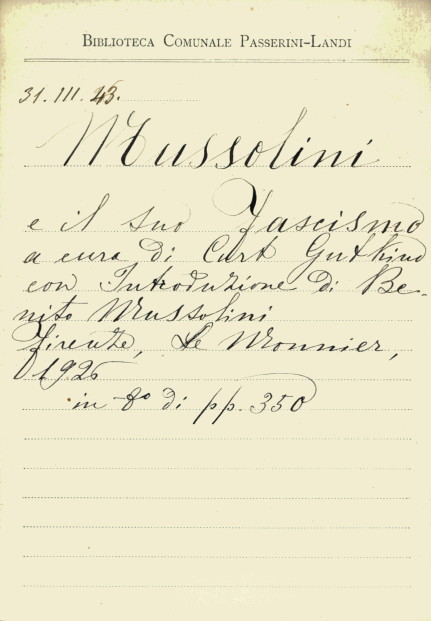 BIBLIOTECA COMUNALE PASSERINI-LANDI
31. III. 43.
Mussolini
e il suo Fascismo
a cura di Curt Gutkind
con Introduzione di Be-
nito Mussolini
Firenze, Le Monnier,
1926
in 8º di pp. 350